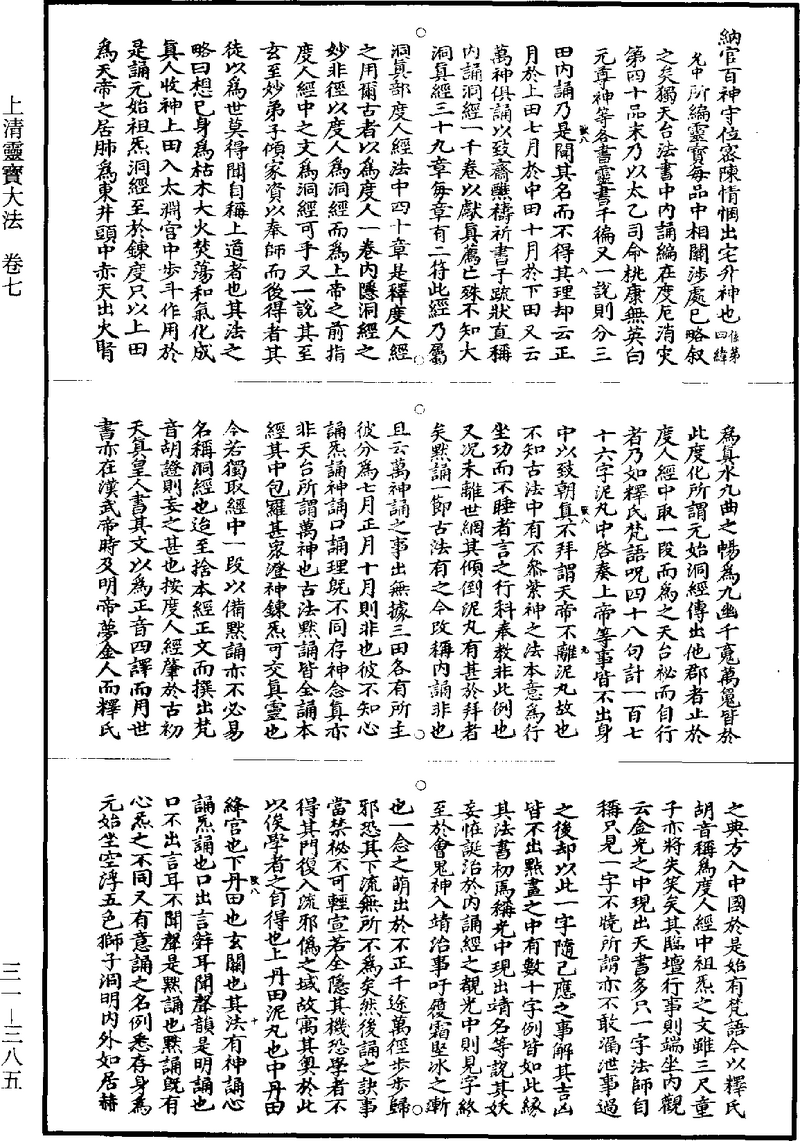 上清靈寶大法　卷七
納官百神守位審陳情悃出宅升神也位第四緯
允中所編靈寶每品中相關涉處已略叙
之矣獨天台法書中內誦編在度厄消灾
第四十品末乃以太乙司命桃康無英白
元尊神等各書靈書千徧又一說則分三
田內誦乃是聞其名而不得其理却云正
月於上田七月於中田十月於下田又云
萬神俱誦以致齋醮禱祈書子疏狀直稱
內誦洞經一千卷以獻真薦亡殊不知大
洞真經三十九章每章有二符此經乃屬
洞真部度人經法中四十章是釋度人經
之用爾古者以爲度人一卷內隱洞經之
妙非徑以度人爲洞經而爲上帝之前指
度人經中之文爲洞經可乎又一說其至
玄至妙弟子傾家資以奉師而後得者其
徒以爲世莫得聞自稱上道者也其法之
略曰想已身爲枯木大火焚蕩和氣化成
真人收神上田入太淵宮中步斗作用於
是誦元始祖炁洞經至於鍊度只以上田
爲天帝之居肺爲東井頭中赤天出火腎
爲真水九曲之暢爲九幽千鬼萬冤皆於
此度化所謂元始洞經傳出他郡者止於
度人經中取一段而爲之天台秘而自行
者乃如釋氏梵語呪四十八句計一百七
十六字泥丸中啓奏上帝等事皆不出身
中以致朝真不拜謂天帝不離泥丸故也
不知古法中有不叅紫神之法本意爲行
坐功而不睡者言之行科奉教非此例也
又况未離世網其傾倒泥丸有甚於拜者
矣默誦一節古法有之今改稱內誦非也
且云萬神誦之事出無據三田各有所主
彼分爲七月正月十月則非也彼不知心
誦炁誦神誦口誦理既不同存神念真亦
非天台所謂萬神也古法默誦皆全誦本
經其中包羅甚衆澄神鍊炁可交真靈也
今若獨取經中一段以備默誦亦不必易
名稱洞經也迨至捨本經正文而撰出梵
音胡證則妄之甚也按度人經肇於古初
天真皇人書其文以爲正音四譯而用世
書亦在漢武帝時及明帝夢金人而釋氏
之典方入中國於是始有梵語今以釋氏
胡音稱爲度人經中祖炁之文雖三尺童
子亦將失笑矣其臨壇行事則端坐內觀
云金光之中現出天書多只一字法師自
稱只見一字不曉所謂亦不敢漏泄事過
之後却以此一字隨已應之事解其吉凶
皆不出點畫之中有數十字例皆如此緣
其法書初焉稱光中現出靖名等說其妖
妄恠誕治於內誦經之覩光中則見字終
至於會鬼神入靖治事吁履霜堅冰之漸
也一念之萌出於不正千途萬徑步步歸
邪恐其下流無所不爲矣然後誦之訣事
當禁秘不可輕宣若全隱其機恐學者不
得其門復入疏邪僞之域故寓其奥於此
以俟學者之自得也上丹田泥丸也中丹田
絳宮也下丹田也玄關也其法有神誦心
誦炁誦也口出言辭耳聞聲韻是明誦也
口不出言耳不聞聲是默誦也默誦既有
心炁之不同又有意誦之名例悉存身爲
元始坐空浮五色獅子洞明內外如居赫
三一－三八五